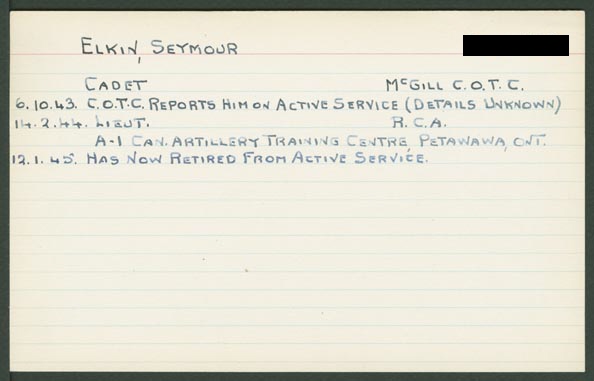 ELKIN, SEYMOUR
CADET McGILL C.O.T.C.
6.10.43. C.O.T.C. REPORTS HIM ON ACTIVE SERVICE (DETAILS UNKNOWN)
14.2.44. LIEUT. R.C.A.
A-1 CAN. ARTILLERY TRAINING CENTRE, PETAWAWA, ONT.
12.1.45. HAS NOW RETIRED FROM ACTIVE SERVICE.